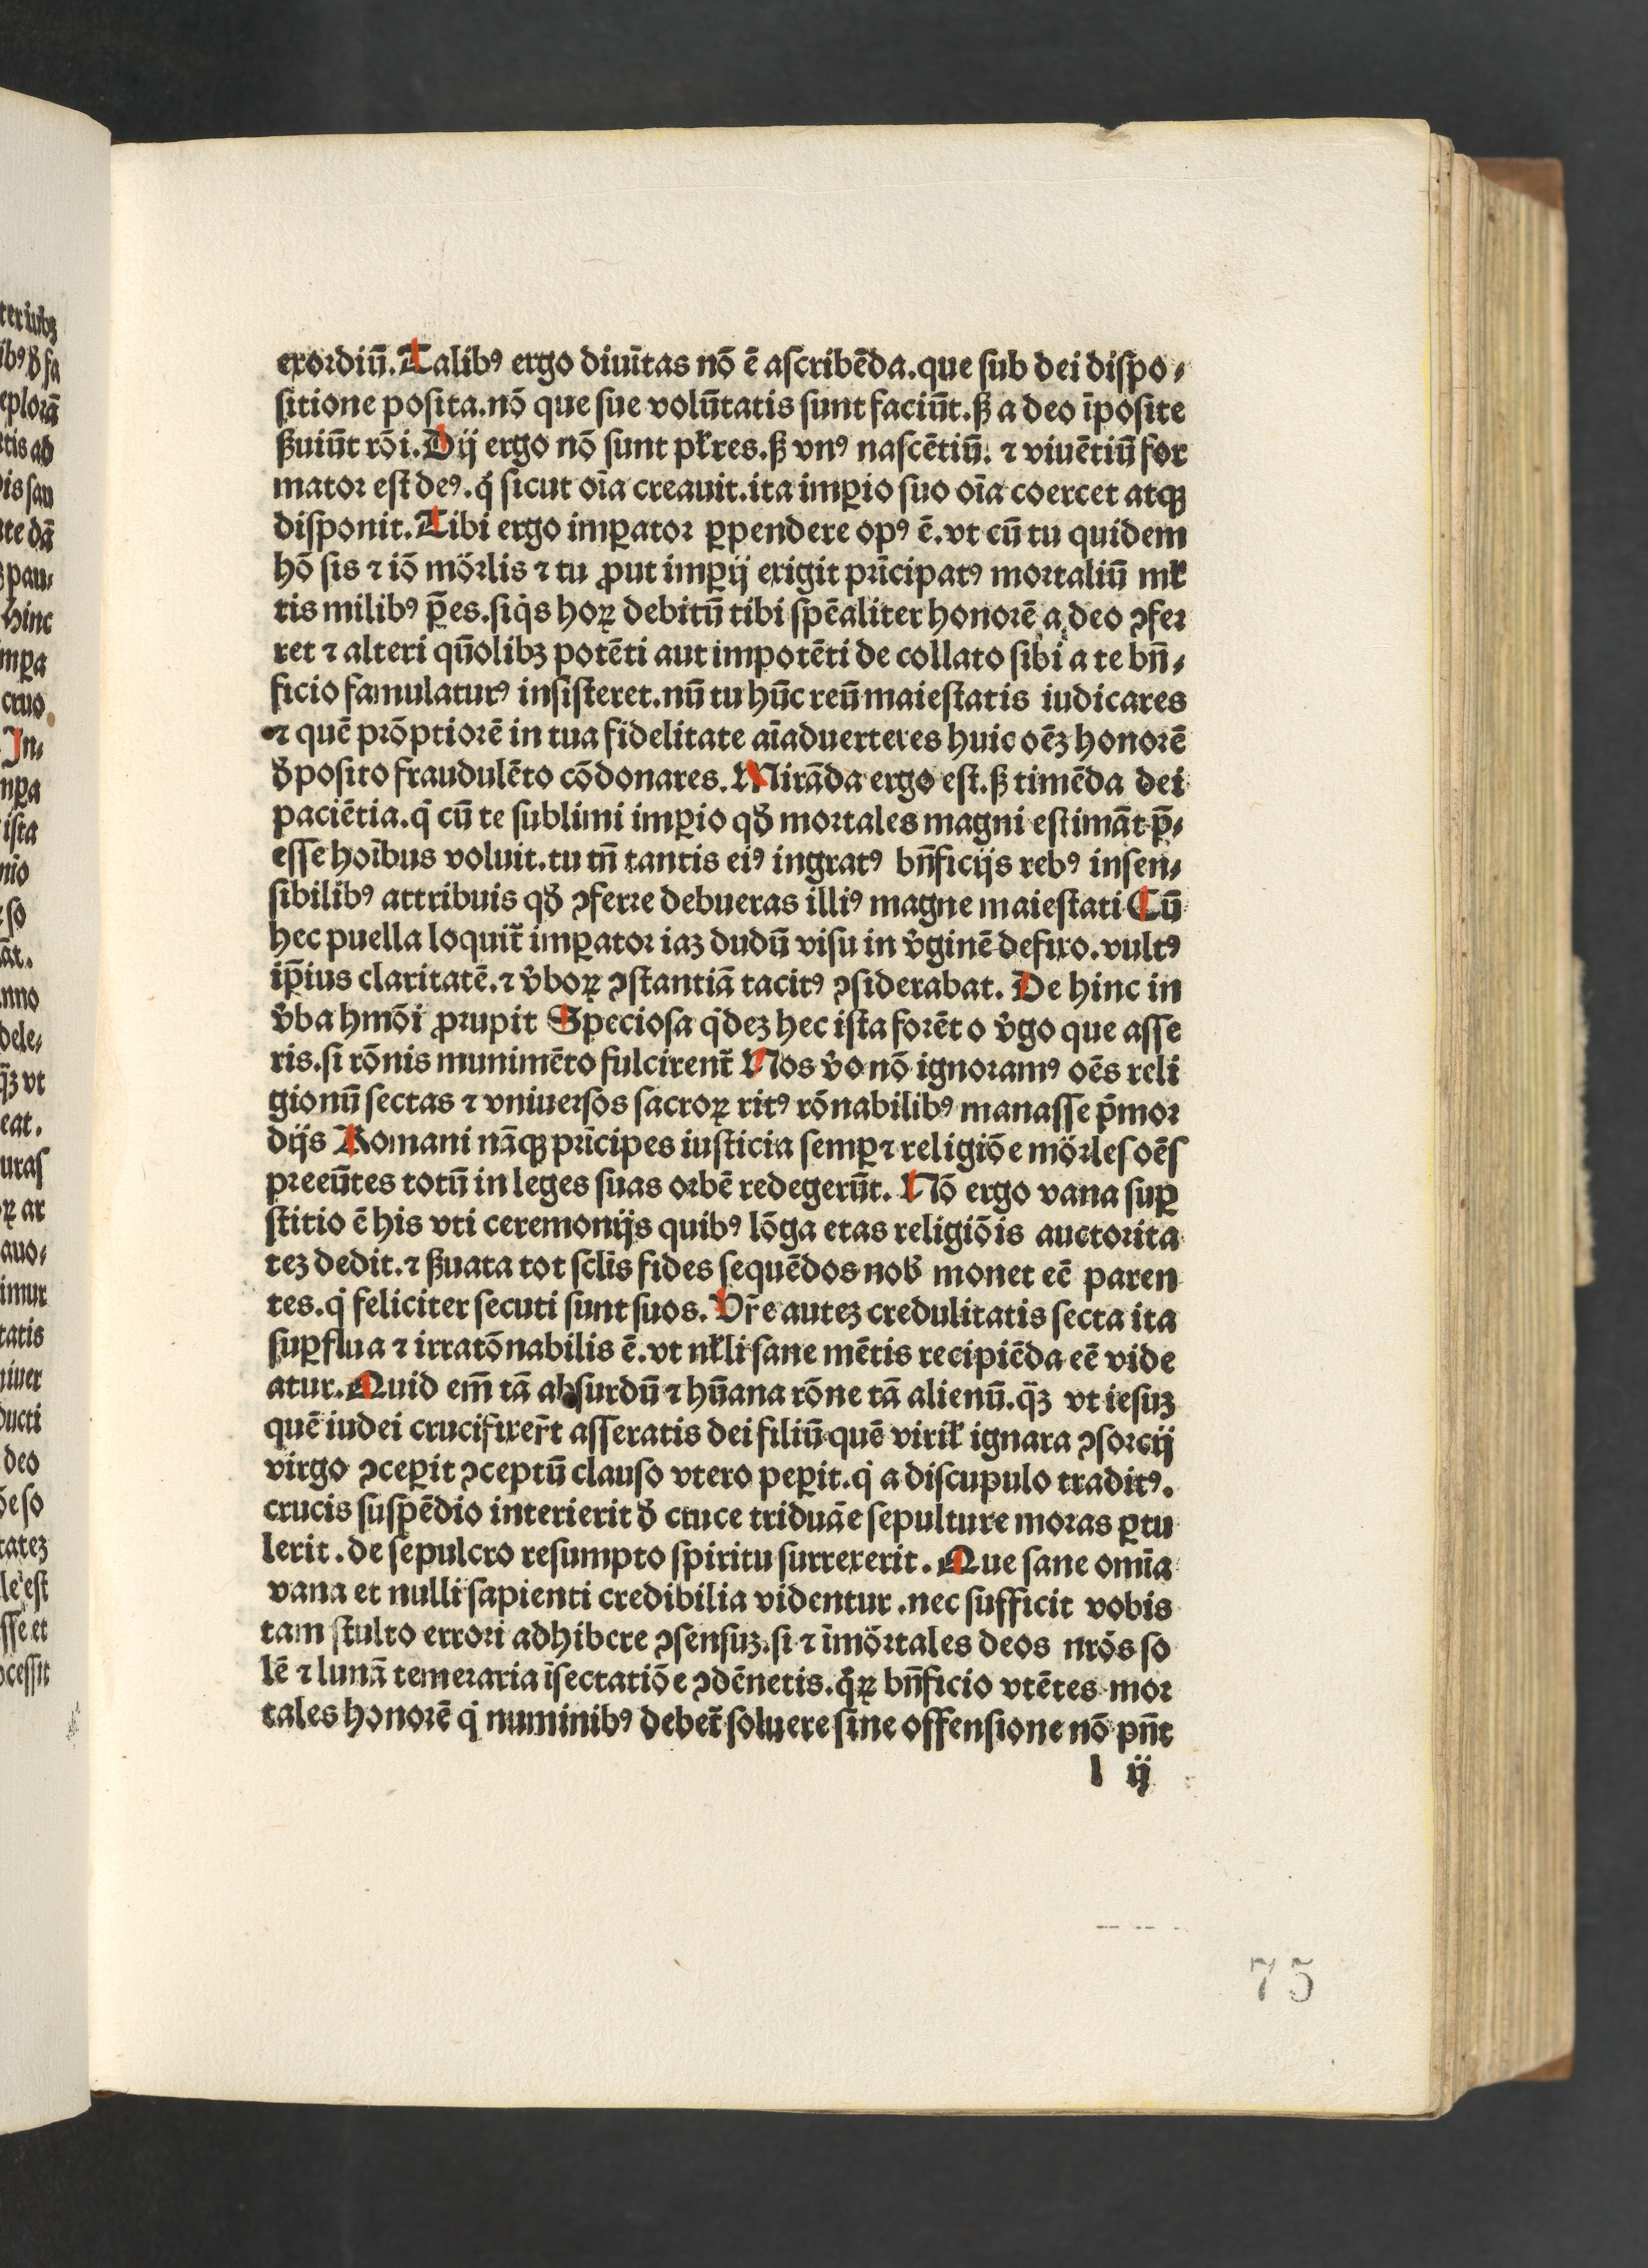 exordiū. Talibꝰ ergo diuītas nō ē aſcribēda. que ſub dei diſpo⸗
ſitione poſita. nō que ſue volūtatis ſunt faciūt. ꝭ a deo īpoſite
ꝭuiūt rōi. Dij ergo nō ſunt pl̄res. ꝭ vnꝰ naſcētiū. ⁊ viuētiū for
mator eſt deꝰ. q̇ ſicut oīa creauit. ita imꝑio ſuo oīa coercet atqꝫ
diſponit. Tibi ergo imꝑator ꝑpendere opꝰ ē. vt cū tu quidem
hō ſis ⁊ iō mōrlis ⁊ tu ꝓut imꝑij exigit prīcipatꝰ mortaliū ml̄
tis milibꝰ p̄es. ſiq̇s hoꝝ debitū tibi ſpēaliter honorē a deo ꝯfer
ret ⁊ alteri qūolibꝫ potēti aut impotēti de collato ſibi a te bn̄⸗
ficio famulaturꝰ inſiſteret. nū tu hūc reū maieſtatis iudicares
⁊ quē prōptiorē in tua fidelitate aīaduerteres huic oēꝫ honorē
d̓poſito fraudulēto cōdonares. Mirāda ergo eſt. ꝭ timēda dei
paciētia. q̇ cū te ſublimi imꝑio qd̓ mortales magni eſtimāt p̄⸗
eſſe hoībus voluit. tu tn̄ tantis eiꝰ ingratꝰ bn̄ficijs rebꝰ inſen⸗
ſibilibꝰ attribuis qd̓ ꝯferre debueras illiꝰ magne maieſtati Cū
hec puella loquit̄ imꝑator iaꝫ dudū viſu in v̓ginē defixo. vultꝰ
ip̄ius claritatē. ⁊ v̓boꝝ ꝯſtantiā tacitꝰ ꝯſiderabat. De hinc in
v̓ba hmōi ꝓrupit Specioſa q̇deꝫ hec iſta forēt o v̓go que aſſe
ris. ſi rōnis munimēto fulcirent̄ Nos v̓o nō ignoramꝰ oēs reli
gionū ſectas ⁊ vniuerſos ſacroꝝ ritꝰ rōnabilibꝰ manaſſe p̄mor
dijs Romani nāqꝫ prīcipes iuſticia ſemꝑ ⁊ religiōe mōrleſ oēſ
preeūtes totū in leges ſuas orbē redegerūt. Nō ergo vana ſuꝑ
ſtitio ē his vti ceremonijs quibꝰ lōga etas religiōis auctorita
teꝫ dedit. ⁊ ꝭuata tot ſcl̄is fides ſequēdos nob̓ monet eē paren
tes. q̇ feliciter ſecuti ſunt ſuos. Vr̄e auteꝫ credulitatis ſecta ita
ſuꝑflua ⁊ irratōnabilis ē. vt nl̄li ſane mētis recipiēda eē vide
atur. Quid em̄ tā abſurdū ⁊ hūana rōne tā alienū. q̄ꝫ vt ieſuꝫ
quē iudei crucifixer̄t aſſeratis dei filiū quē viril̄ ignara ꝯſorcij
virgo ꝯceꝑit ꝯceptū clauſo vtero peꝑit. q̇ a diſcupulo traditꝰ.
crucis ſuſpēdio interierit d̓ cruce triduāe ſepulture moras ꝑtu
lerit. de ſepulcro reſumpto ſpiritu ſurrexerit. Que ſane omīa
vana et nulli ſapienti credibilia videntur. nec ſufficit vobis
tam ſtulto errori adhibere ꝯſenſuꝫ. ſi ⁊ īmōrtales deos nrōs ſo
lē ⁊ lunā temeraria īſectatiōe ꝯdēnetis. q̇ꝝ bn̄ficio vtētes mor
tales honorē q̇ numinibꝰ debet̄ ſoluere ſine offenſione nō pn̄t
l ij
75